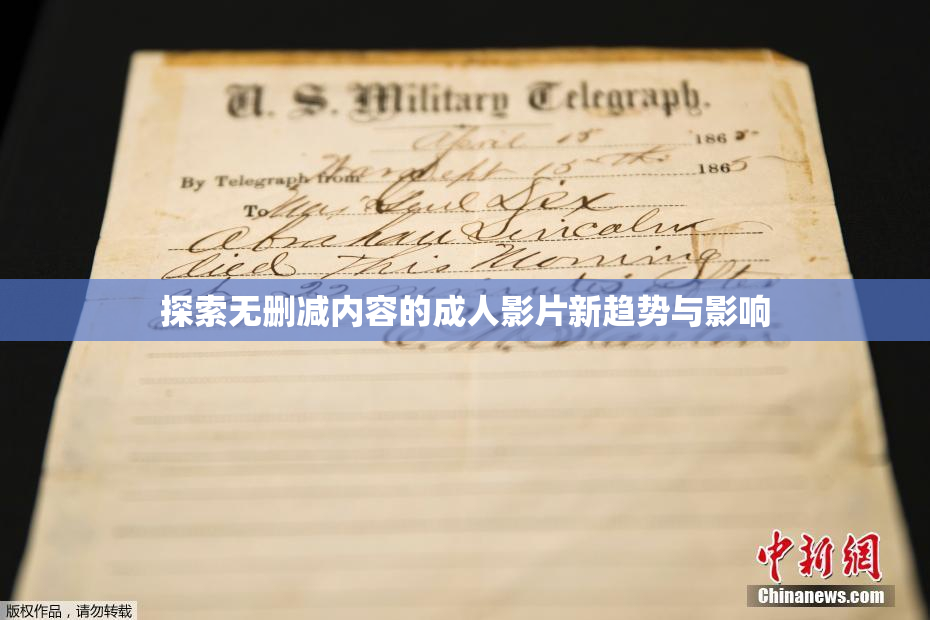 U. S. Military Telegraph.
April 15 1865
By Telegraph from War Dept 15th 1865
To Maj Genl Dix
Abraham Lincoln
died This Morning
22 minutes after
探索无删减内容的成人影片新趋势与影响
E. M. Stanton
中新網
Chinanews.com
版权作品，请勿转载